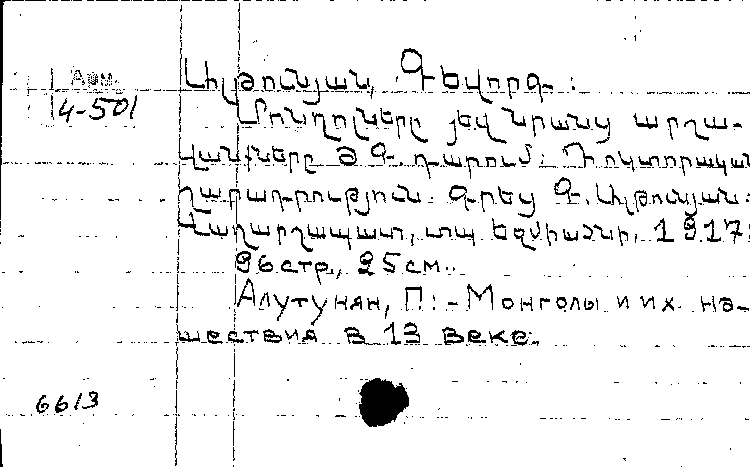 Арм.
4-501
Ալթունյան, Գեվորգ:
Մոնղոլները յեվ նրանց արշա-
վանքները ԺԳ. դարում: Դոկտորական
շարադրություն. գրեց Գ. Ալթունյան:
Վաղարշապատ, տպ Եջմիածնի, 1917:
96 стр, 25 см.
Алутунян, П: - Монголы и их на-
шествия в 13 веке.
6613